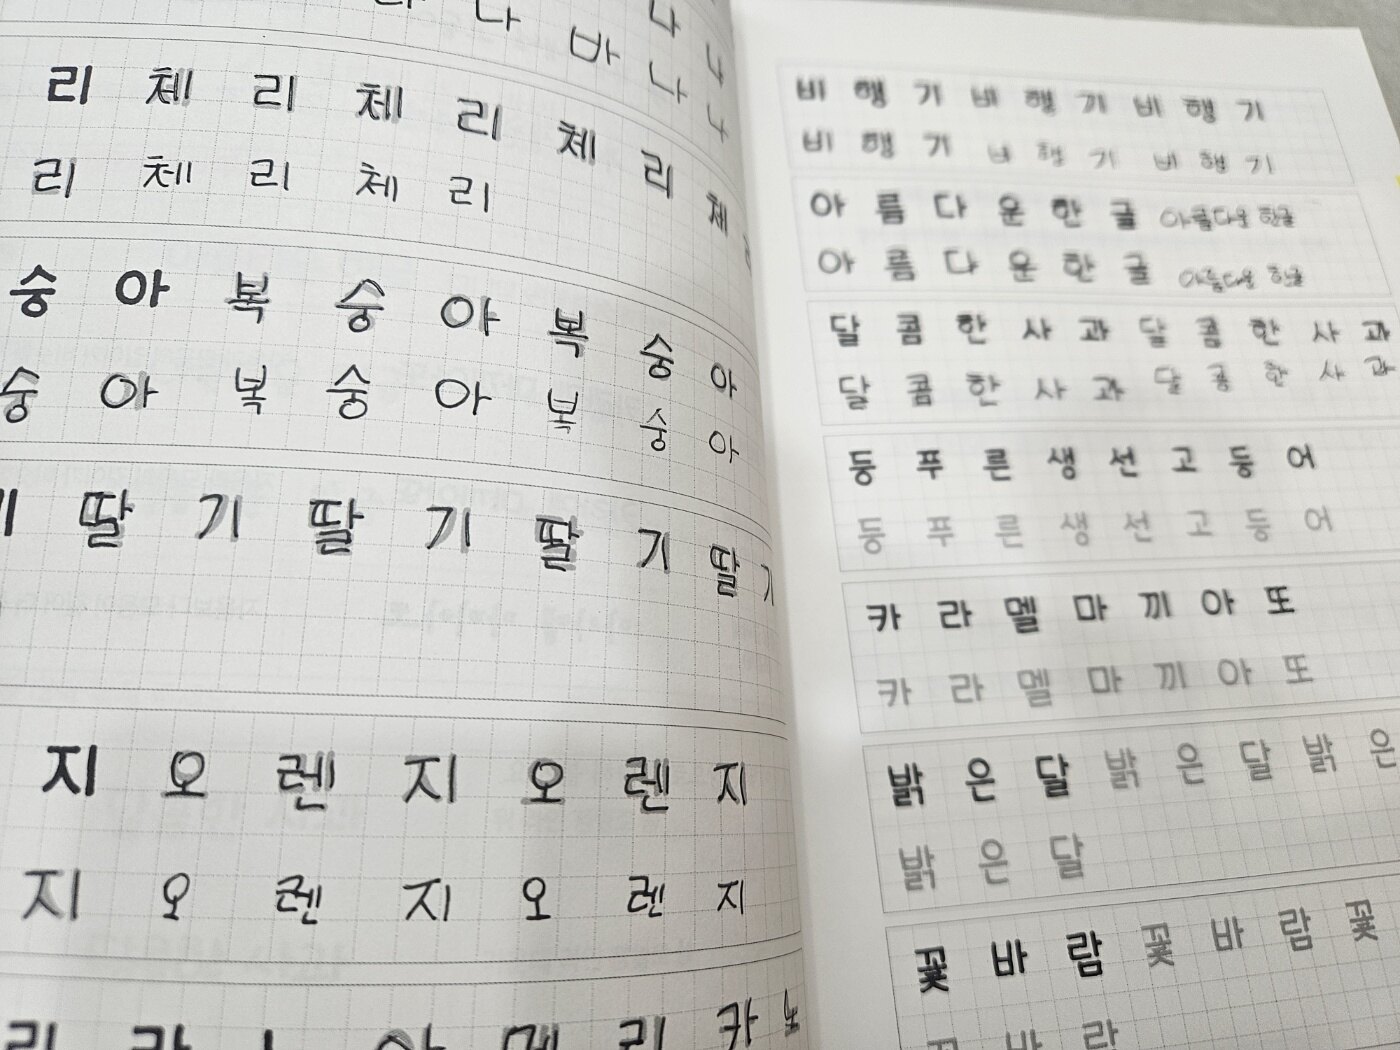 나 바 나 나
나 나
리 체 리 체 리 체 리 체
리 체 리 체 리
숭 아 복 숭 아 복 숭 아
숭 아 복 숭 아 복 숭 아
딸 기 딸 기 딸 기 딸 기
지 오 렌 지 오 렌 지
지 오 렌 지 오 렌 지
비 행 기 비 행 기 비 행 기
비 행 기 비 행 기 비 행 기
아 름 다 운 한 글 아름다운 한글
아 름 다 운 한 글 아름다운 한글
달 콤 한 사 과 달 콤 한 사 과
달 콤 한 사 과 달 콤 한 사 과
등 푸 른 생 선 고 등 어
등 푸 른 생 선 고 등 어
카 라 멜 마 끼 아 또
카 라 멜 마 끼 아 또
밝 은 달 밝 은 달 밝 은
밝 은 달
꽃 바 람 꽃 바 람 꽃
바 람